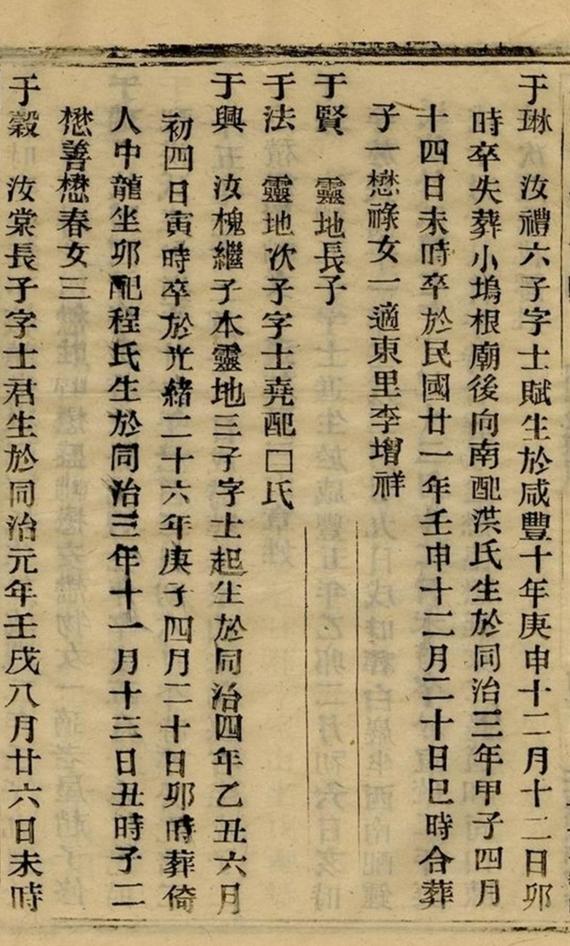 于琳 汝禮六子字士賦生於咸豐十年庚申十二月十二日卯
時卒失葬小塢根廟後向南配洪氏生於同治三年甲子四月
十四日未時卒於民國廿一年壬申十二月二十日巳時合葬
子一懋祿女一適東里李增祥
于賢 靈地長子
于法 靈地次子字士堯配□氏
于興 汝槐繼子本靈地三子字士起生於同治四年乙丑六月
初四日寅時卒於光緒二十六年庚子四月二十日卯時葬倚
人中龍坐卯配程氏生於同治三年十一月十三日丑時子二
懋善懋春女三
于穀 汝棠長子字士君生於同治元年壬戌八月廿六日未時